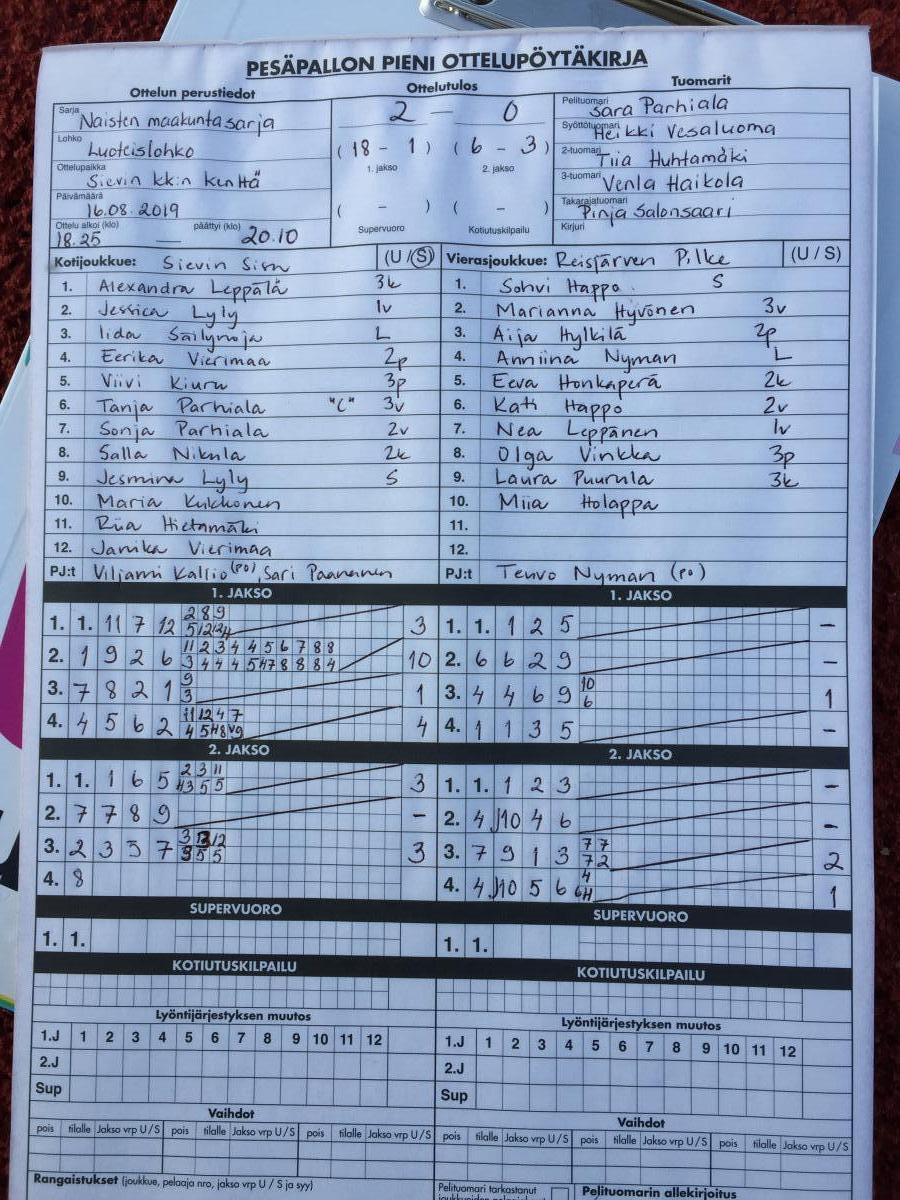 PESÄPALLON PIENI OTTELUPÖYTÄKIRJA
Ottelun perustiedot
Ottelutulos
Tuomarit
Sarja Naisten maakuntasarja
2 — 0
Pelituomari Sara Parhiala
Lohko Luoteislohko
(18 - 1) (6 - 3)
Syöttötuomari Heikki Vesaluoma
1. jakso 2. jakso
Ottelupaikka Sievin kk:n kenttä
2-tuomari Tiia Huhtamäki
3-tuomari Venla Haikola
Päivämäärä 16.08.2019
( - ) ( - )
Takarajatuomari Pinja Salonsaari
Ottelu alkoi (klo) 18.25 — päättyi (klo) 20.10
Supervuoro Kotiutuskilpailu
Kirjuri
Kotijoukkue: Sievin Sisu (U / S)
Vierasjoukkue: Reisjärven Pilke (U / S)
1. Alexandra Leppälä 3k
1. Sohvi Happo S
2. Jessica Lyly 1v
2. Marianna Hyvönen 3v
3. Iida Säilynoja L
3. Aija Hylkilä 2p
4. Eerika Vierimaa 2p
4. Anniina Nyman L
5. Viivi Kiuru 3p
5. Eeva Honkaperä 2k
6. Tanja Parhiala "C" 3v
6. Kati Happo 2v
7. Sonja Parhiala 2v
7. Nea Leppänen 1v
8. Salla Nikula 2k
8. Olga Vinkka 3p
9. Jesmina Lyly S
9. Laura Puurula 3k
10. Maria Kukkonen
10. Miia Holappa
11. Riia Hietamäki
11.
12. Janika Vierimaa
12.
PJ:t Viljami Kallio (po), Sari Paananen
PJ:t Teuvo Nyman (po)
1. JAKSO
1. JAKSO
2 8 9
1. 1. 11 7 12 3
1. 1. 1 2 5 -
11 2 3 4 4 5 6 7 8 8
2. 1 9 2 6 10
2. 6 6 2 9 -
9
10
3. 7 8 2 1 3 1
3. 4 4 6 9 6 1
11 12 4 7
4. 4 5 6 2 4
4. 1 1 3 5 -
2. JAKSO
2. JAKSO
2 3 11
1. 1. 1 6 5 3
1. 1. 1 2 3 -
2. 7 7 8 9 -
2. 4 J10 4 6 -
7 7
3. 2 3 5 7 3
3. 7 9 1 3 7 2 2
4
4. 8
4. 4 J10 5 6 1
SUPERVUORO
SUPERVUORO
1. 1.
1. 1.
KOTIUTUSKILPAILU
KOTIUTUSKILPAILU
Lyöntijärjestyksen muutos
Lyöntijärjestyksen muutos
1.J 1 2 3 4 5 6 7 8 9 10 11 12
1.J 1 2 3 4 5 6 7 8 9 10 11 12
2.J
2.J
Sup
Sup
Vaihdot
Vaihdot
pois tilalle Jakso vrp U / S pois tilalle Jakso vrp U / S pois tilalle Jakso vrp U / S
pois tilalle Jakso vrp U / S pois tilalle Jakso vrp U / S pois tilalle Jakso vrp U / S
Rangaistukset (joukkue, pelaaja nro, jakso vrp U / S ja syy)
Pelituomari tarkastanut
Pelituomarin allekirjoitus